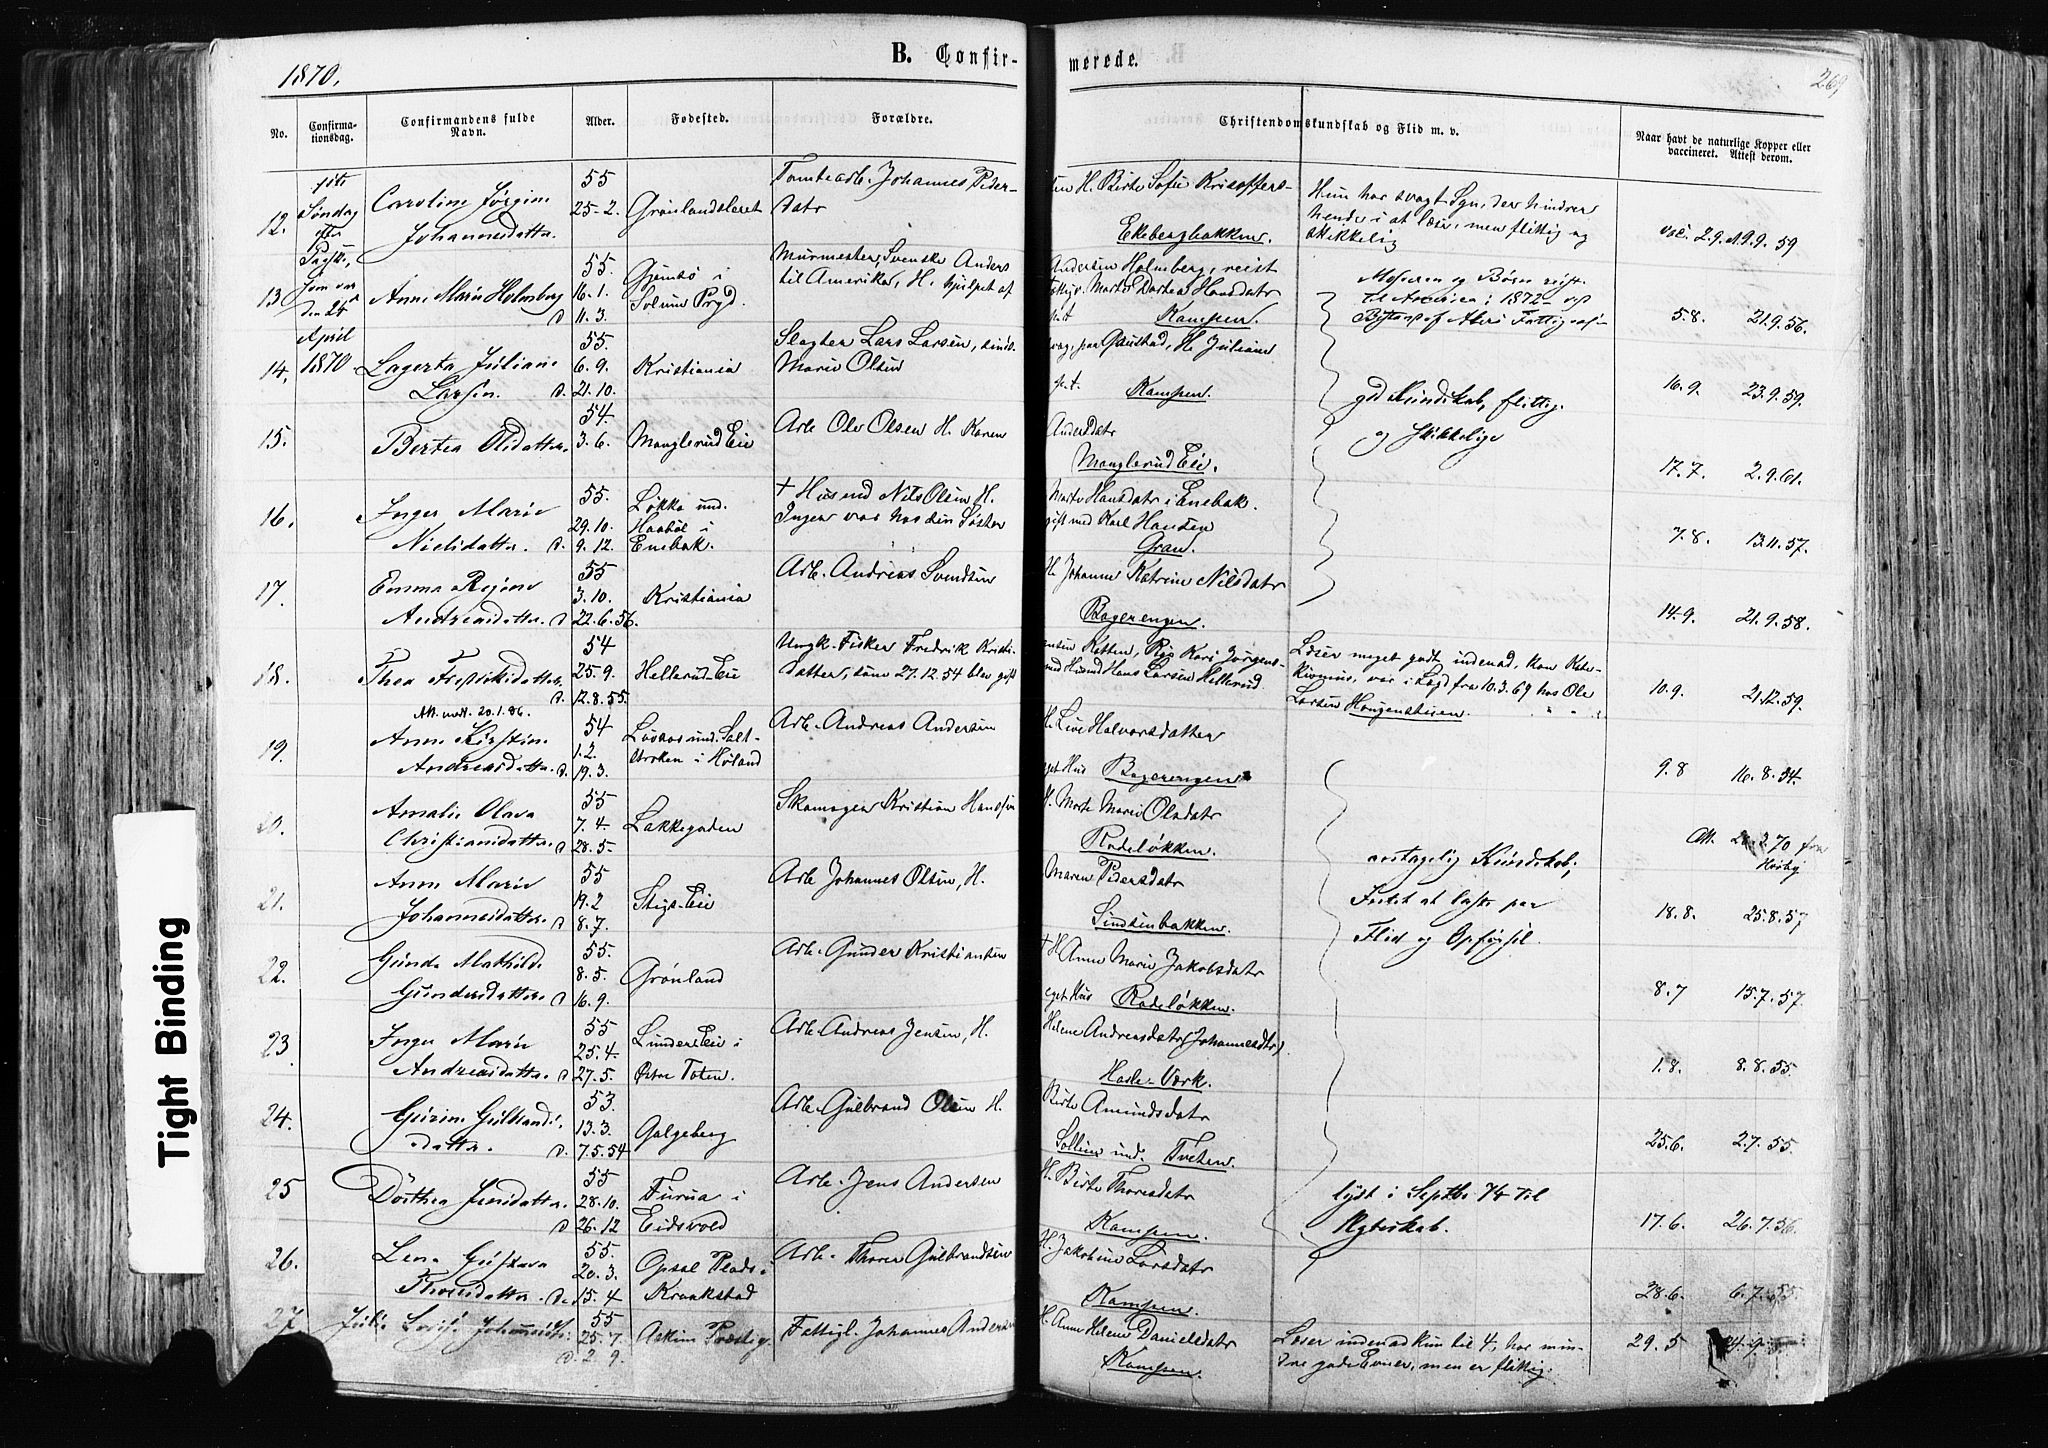 1870.
B. Confirmerede.
269
No.
Confirmationsdag.
Confirmandens fulde Navn.
Alder.
Fødested.
Forældre.
Christendomskundskab og Flid m. v.
Naar havt de naturlige Kopper eller vaccineret. Attest derom.
1ste Søndag efter Paaske, som var den 24 April 1870
12. Caroline Jørgine Johannesdatter.
55 25-2.
Grønlandsleret
Tomtearb. Johannes Peder-
sen H. Birte Sofie Kristoffers-
datr
Ekebergbakken.
Hun har svagt Syn, der hindrer
hende i at læse, men flittig og
skikkelig
vac. 2.9. A. 9.9. 59
13. Anne Marie Holmberg
55. 16.1. D 11.3.
Solum Prgd.
Murmester, Svenske Anders
Andersen Holmberg, reist
til Amerika, H. hjulpet af
Fattigv. Marte Dortea Hansdatr
p.t. Kampen.
Moderen og Børn reist
til America i 1872
5.8. 21.9.56.
14. Lagerta Juliane Larsen.
55. 6.9. D. 21.10.
Kristiania
Slagter Lars Larsen, sinds-
svag, paa Gaustad, H. Juliane
Marie Olsen
p.t. Kampen.
god Kundskab, flittig
og skikkelige
16.9. 23.9.59.
15. Bertea Olsdatter.
54. 3.6.
Manglerud Eie
Arb. Ole Olsen H. Karen
Andersdatr
Manglerud Eie.
17.7. 2.9.61.
16. Inger Marie Nielsdatter.
55. 29.10. D. 9.12.
Løkka und. Haabøl i Enebak.
† Husmd Nils Olsen H.
Marte Hansdatr i Enebak.
Inger var hos sin Søster
gift med Karl Hansen
Gran.
7.8. 13.11.57.
17. Emma Regine Andreasdatter.
55 3.10. D 22.6.56.
Kristiania
Arb. Andreas Svendsen
H. Johanne Katrine Nilsdatr
Bagerengen.
14.9. 21.9.58.
18. Thea Fredriksdatter
54 25.9. D. 12.8.55.
Hellerud Eie
Ungk. Fisker Fredrik Kristi-
ansen Ketten, Pige Kari Jørgens-
datter, som 27.12.54 blev gift
med Husmd Hans Larsen Hellerud.
Læser meget godt indenad, kan Kate-
kismus, var i Lægd fra 10.3.69 hos Ole
Larsen Haugenstuen.
10.9. 21.12.59.
Att. udst. 20.1.86.
19. Anne Kirstine Andreasdatter
54 1.2. D. 19.3.
Løvaas und. Salt-
i Høland
Arb. Andreas Andersen
H. Live Halvorsdatter
eget Hus Bagerengen
9.8 16.8.54.
20. Amalie Olava Christiansdatter
55 7.4. D 28.5.
Lakkegaden
Skomager Kristian Hansen
H. Marte Marie Olsdatr
Rodeløkken.
Att. 28.2.70 fra
antagelig Kundskab;
21. Anne Marie Johannesdatter.
55 19.2 D 8.7.
Stigs-Eie
Arb. Johannes Olsen, H.
Maren Pedersdatr
Sinsenbakken.
Intet at laste paa
Flid og Opførsel.
18.8. 25.8.57
22. Gunda Mathilde Gundersdatter.
55. 8.5. D 16.9.
Grønland
Arb. Gunder Kristiansen
† H. Anne Marie Jakobsdatr
eget Hus Rodeløkken.
8.7 15.7.57.
23. Inger Marie Andreasdatter.
55 25.4. D 27.5.
Lunders Eie i Østre Toten.
Arb. Andreas Jensen, H.
Helene Andreasdatr (Johannesdtr).
Hasle-Værk.
1.8. 8.8.55.
24. Gurine Gulbrands-
datter.
53. 13.3. D. 7.5.54
Galgeberg
Arb. Gulbrand Olsen H.
Birte Amundsdatr
Sollien und. Tveten.
25.6. 2.7.55.
25 Dorthea Jensdatter
55 28.10. D 26.12
Furua i Eidsvold
Arb. Jens Andersen
H. Birte Thoresdatr
Kampen.
lyst i Septbr 74 til
Ægteskab.
17.6. 26.7.56.
26. Lena Gustava Thoresdatter.
55. 20.3. D. 15.4
Opsal Plads i Kraakstad
Arb. Thore Gulbrandsen
H. Jakobine Larsdatr
Kampen.
28.6. 6.7.55.
27 Julie Lovise Johannesd.
55 25.7. D. 2 9.
Askim Præstig.
Fattigl. Johannes Andersen
H. Anne Helene Danielsdatr
Kampen.
Læser indenad kun til 4, har min-
dre gode Evner, men er flittig.
29.5
Tight Binding